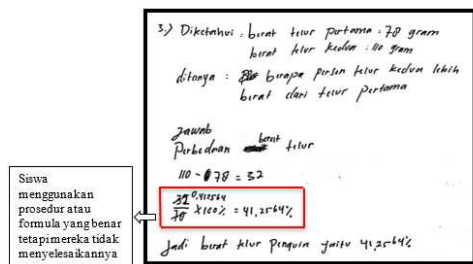 3.) Diketahui : berat telur pertama : 78 gram
berat telur kedua : 110 gram
ditanya : berapa persen telur kedua lebih
berat dari telur pertama
Jawab
Perbedaan berat telur
110 - 78 = 32
32 0,412564
78 x100% = 41,2564%
Jadi berat telur penguin yaitu 41,2564%
Siswa
menggunakan
prosedur atau
formula yang benar
tetapi mereka tidak
menyelesaikannya